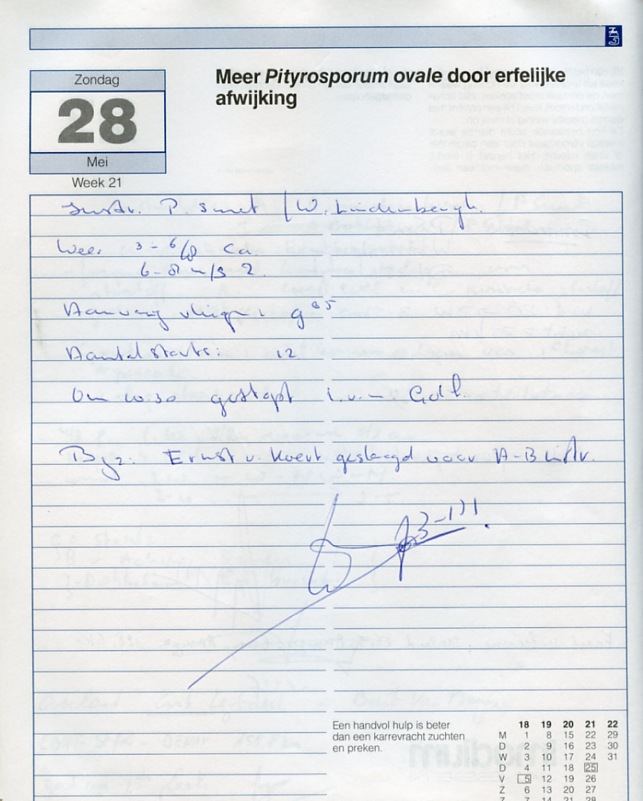 Zondag
28
Mei
Week 21
Meer Pityrosporum ovale door erfelijke
afwijking
Instr. P. Smet / W. Lindenbergh.
Weer 3-6/8 Ca.
6-8 m/s 2.
Aanvang vliegen: 9⁰⁵
Aantal starts: 12
Om 10.30 gestopt i.v.m.
Byz. Ernst v. geslaagd voor A-B instr.
Een handvol hulp is beter
dan een karrevracht zuchten
en preken.
18 19 20 21 22
M 1 8 15 22 29
D 2 9 16 23 30
W 3 10 17 24 31
D 4 11 18 25
V 5 12 19 26
Z 6 13 20 27
Z 7 14 21 28